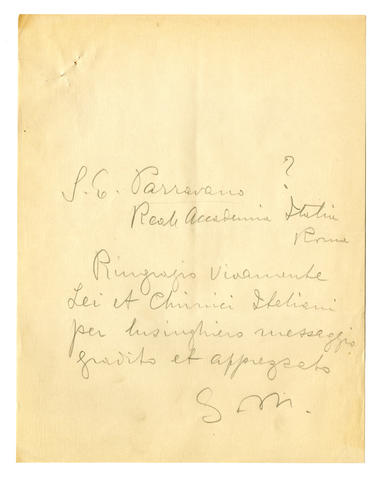 ?
S. E. Parravano
Reale Accademia Italia
Roma
Ringrazio vivamente
Lei et Chimici Italiani
per lusinghiero messaggio
gradito et apprezzato
G. M.